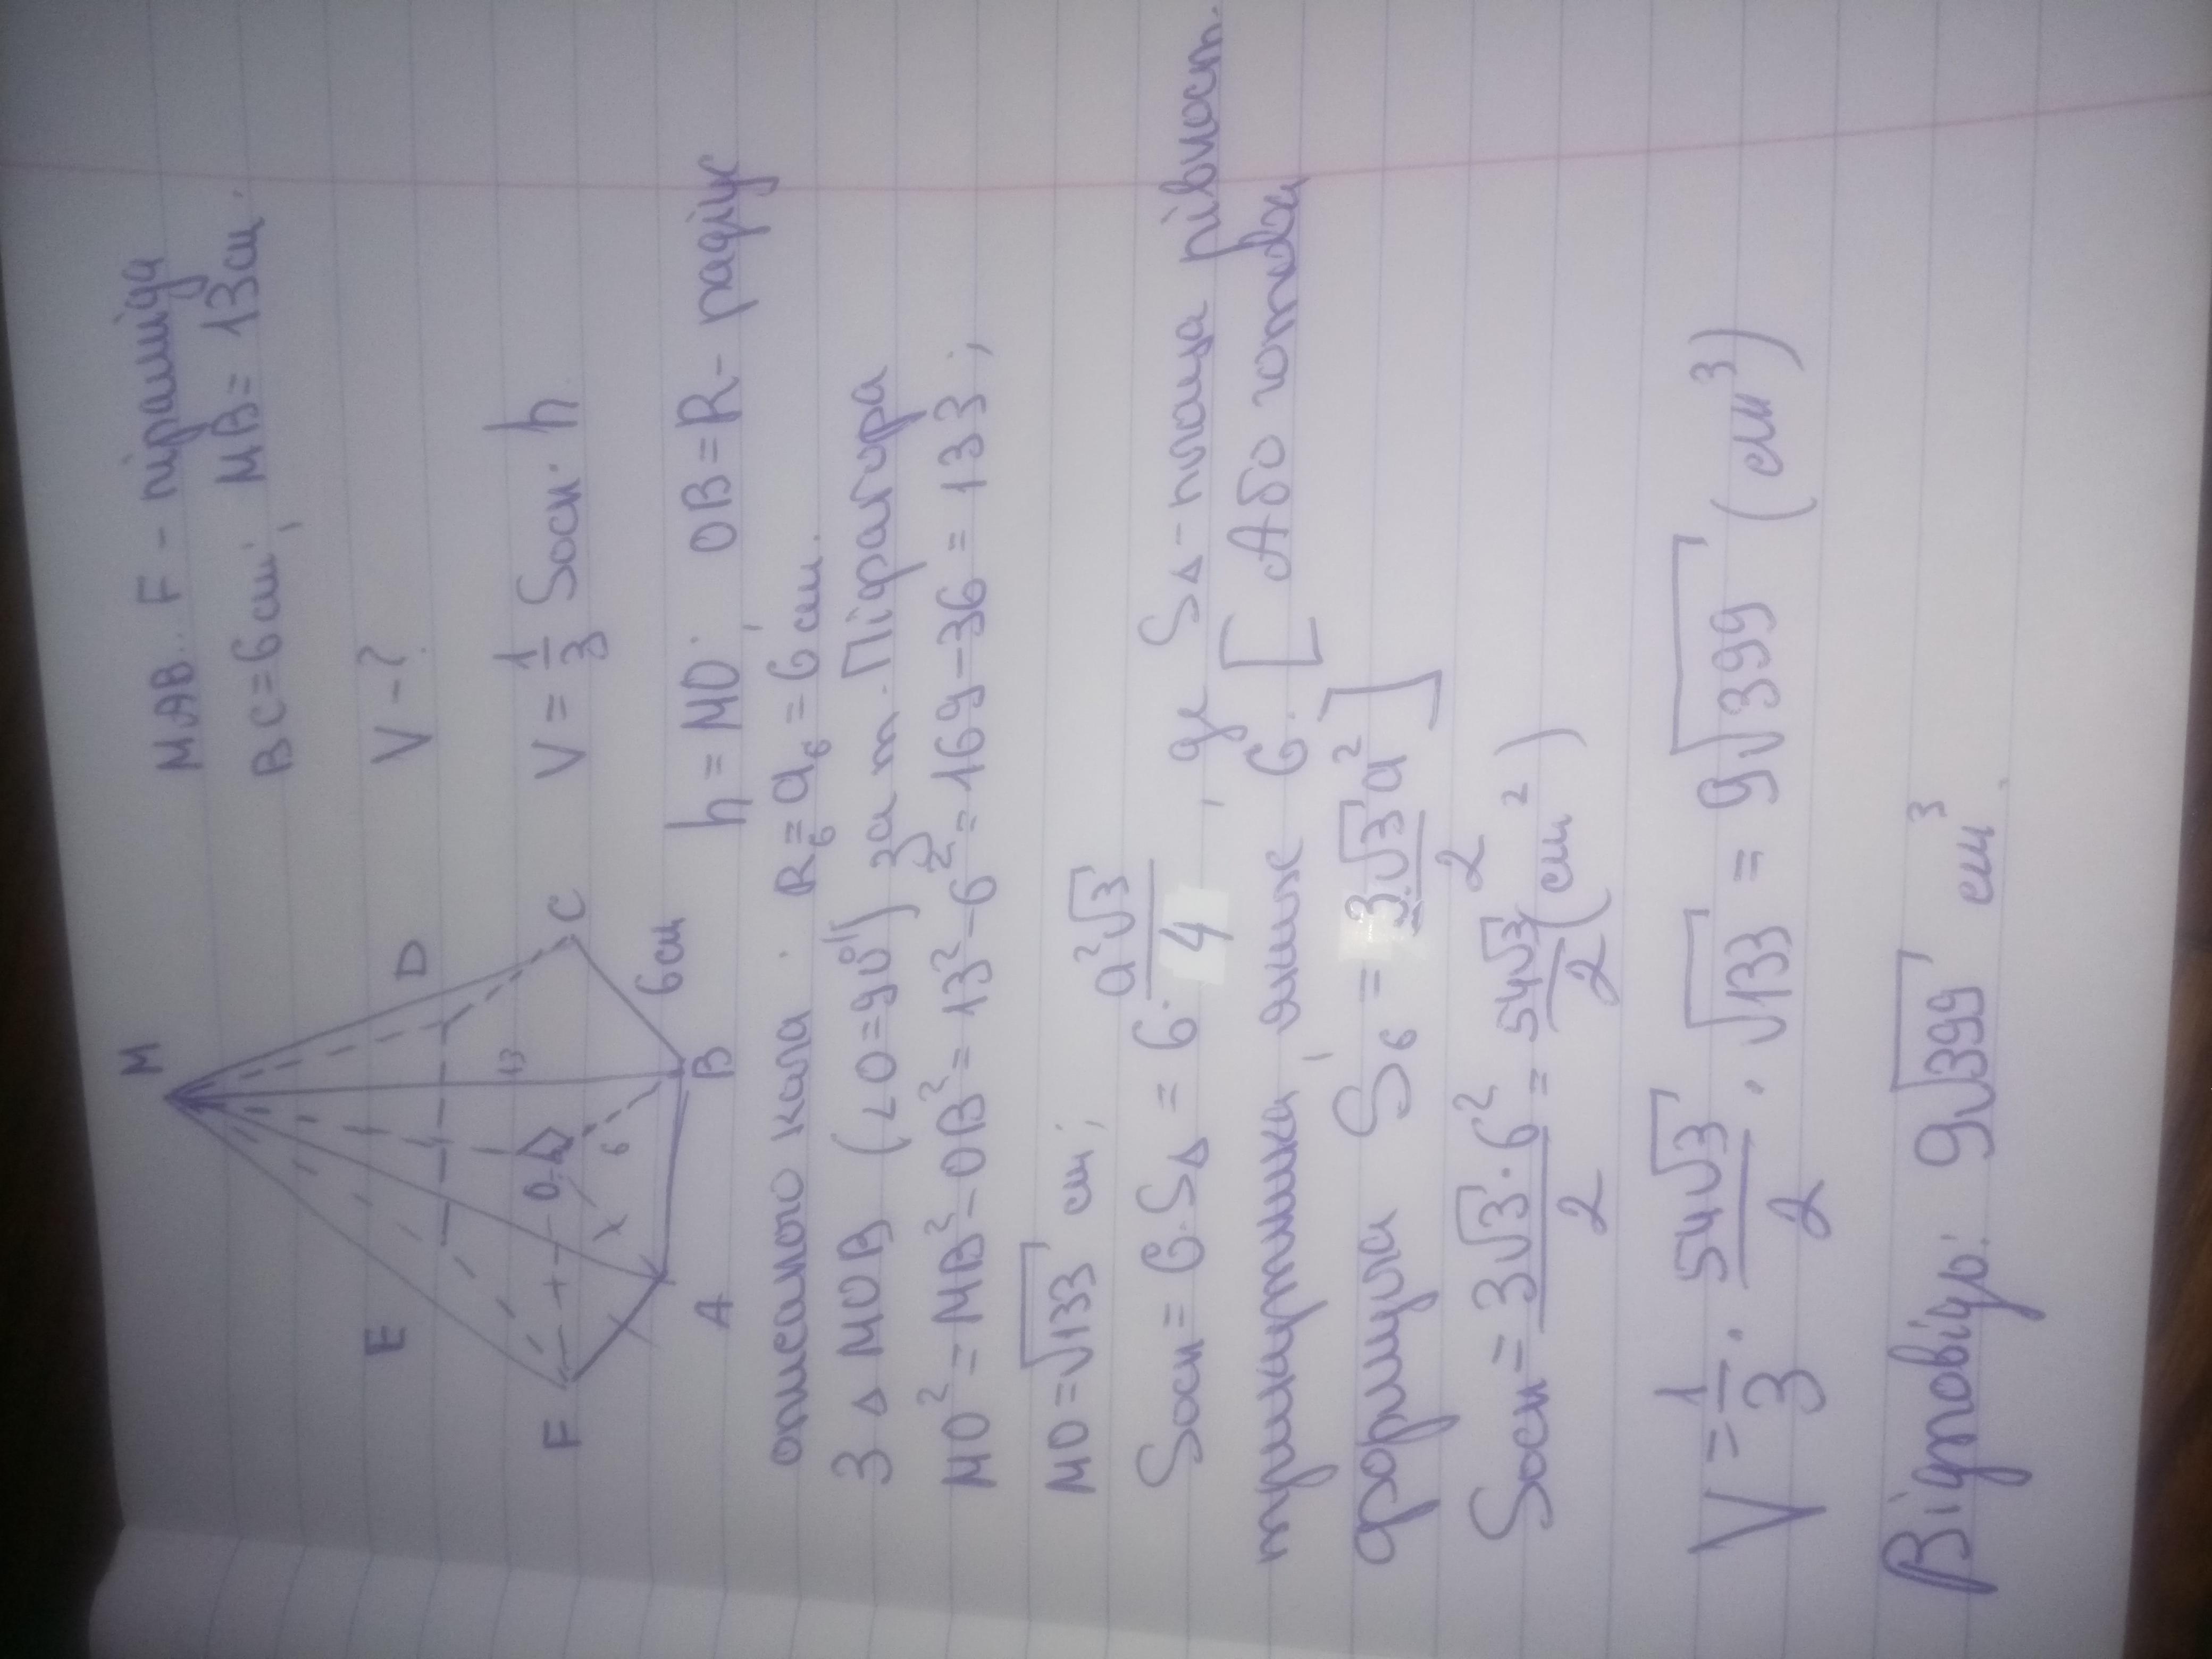 MAB..F - піраміда
BC=6см; MB=13см.
V-?
V = 1/3 Sосн · h
h = MO; OB=R- радіус
описаного кола. R₆=a₆=6 см.
З △ MOB (∠O=90°) за т. Піфагора
MO² = MB² - OB² = 13² - 6² = 169-36 = 133;
MO=√133 см;
Sосн = 6·S△ = 6· a²√3/4, де S△-площа рівност.
трикутника, яких 6. [Або готова
формула S₆ = 3√3a²/2]
Sосн = 3√3·6²/2 = 54√3/2 (см²)
V = 1/3 · 54√3/2 · √133 = 9√399 (см³)
Відповідь: 9√399 см³.
M
E
D
13
O
6
F
C
6см
A
B